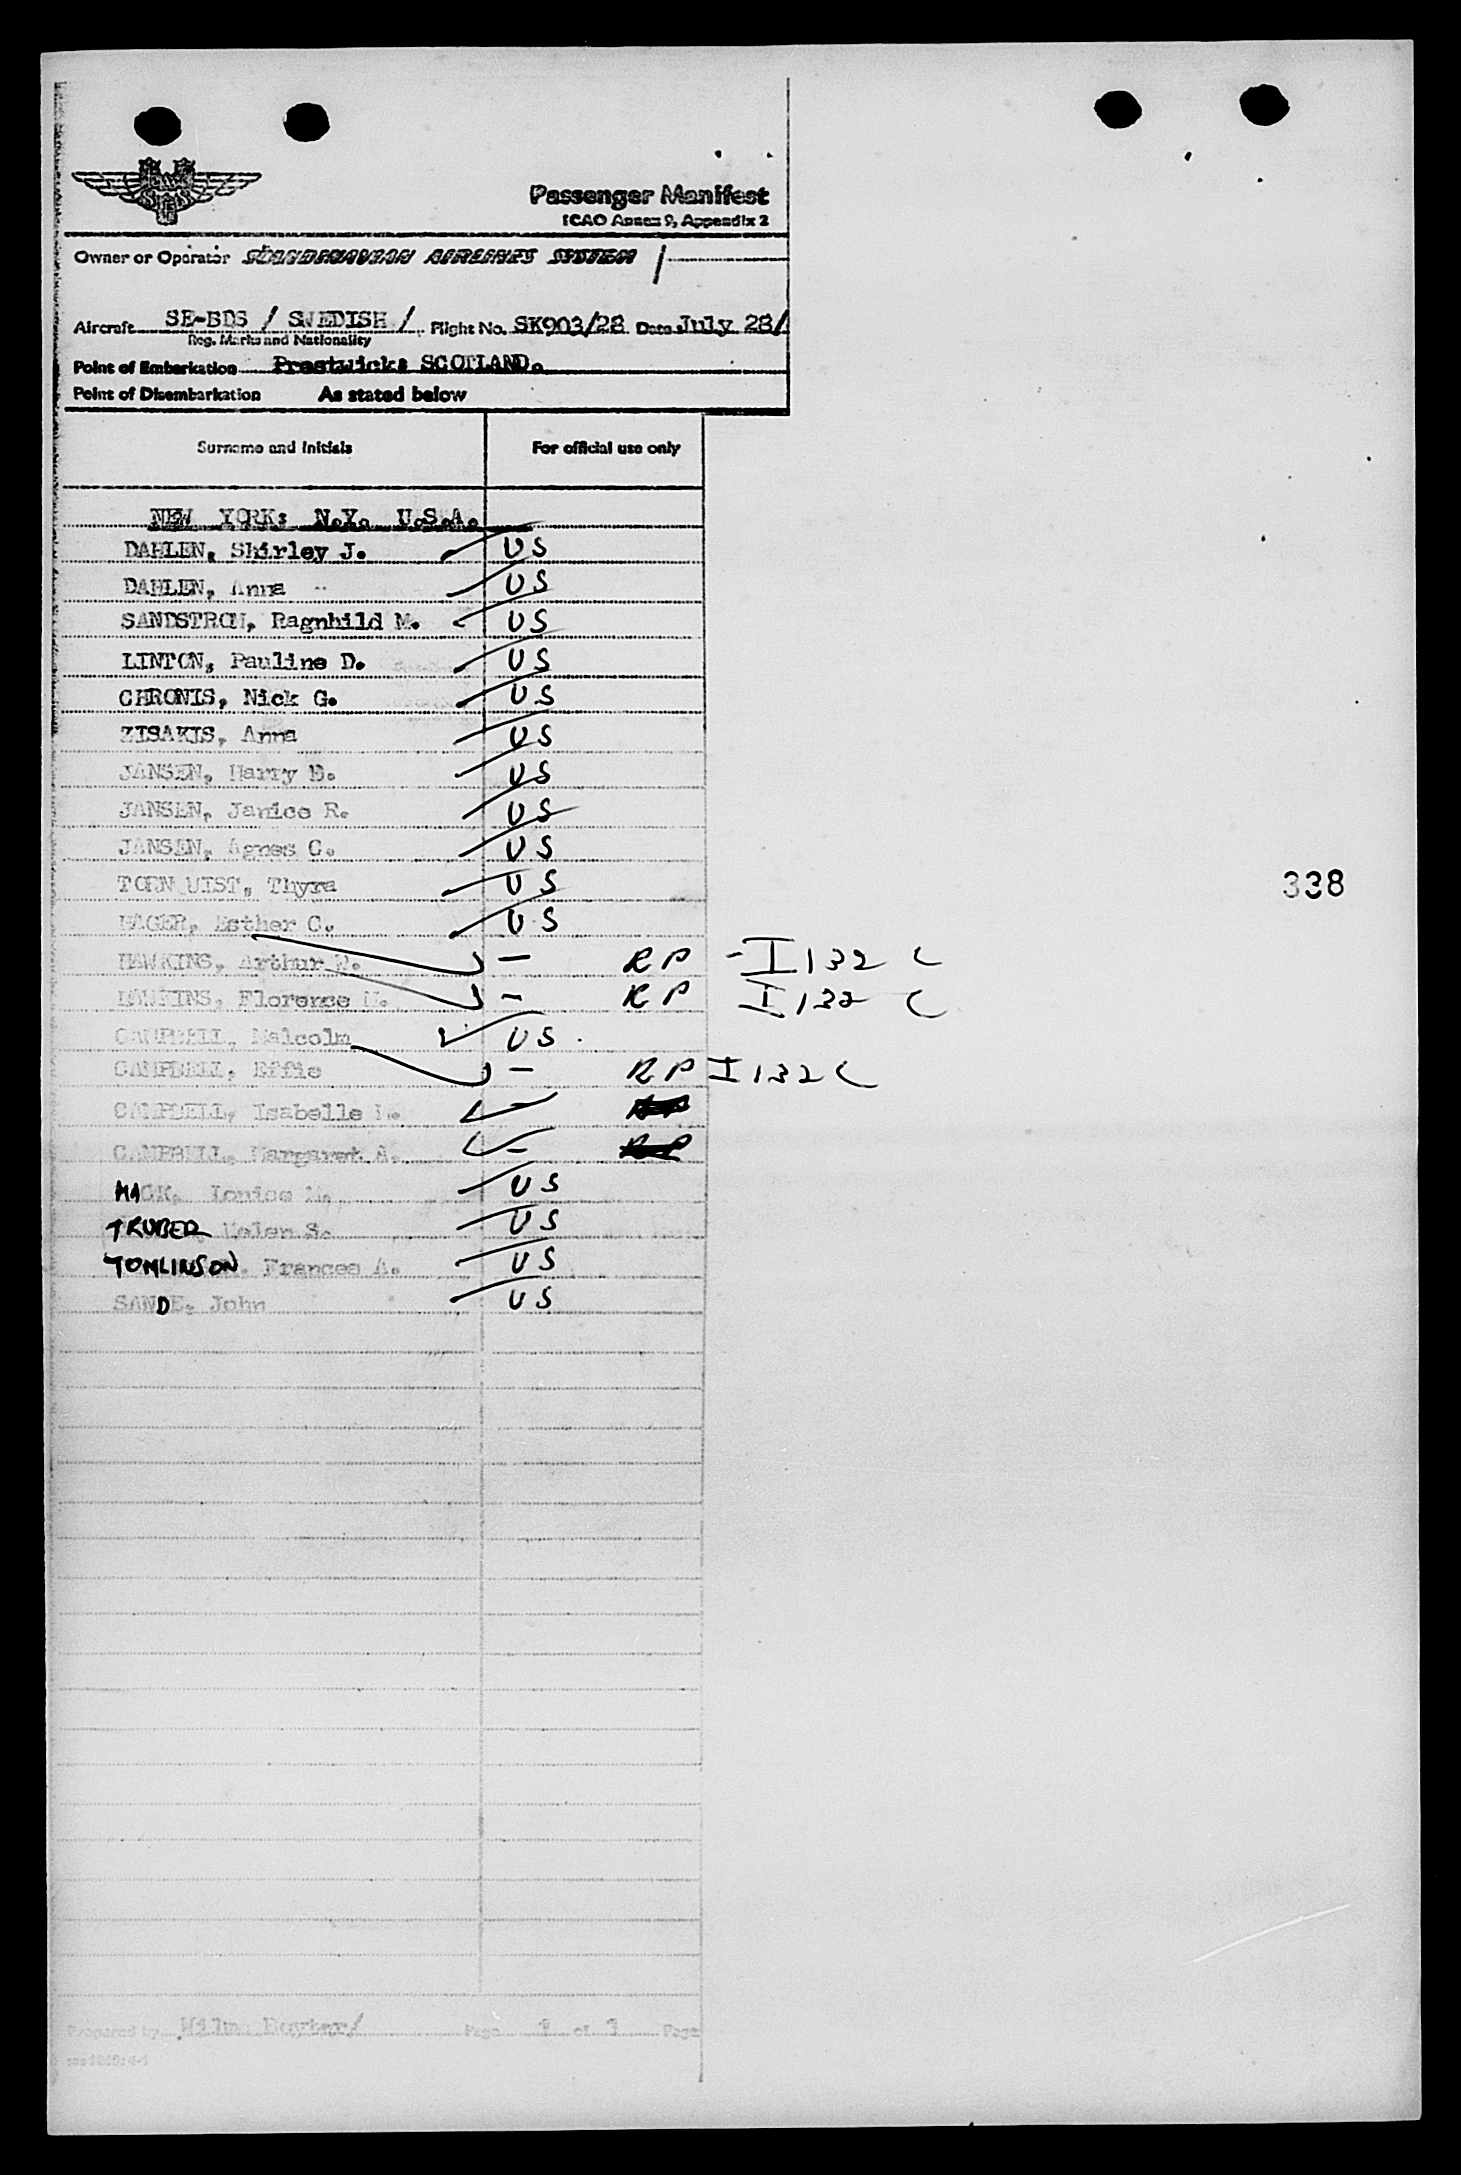 Passenger Manifest
ICAO Annex 9, Appendix 2
Owner or Operator SCANDINAVIAN AIRLINES SYSTEM /
Aircraft SE-BDS / SWEDISH / Flight No. SK903/28 Date July 28/
Reg. Marks and Nationality
Point of Embarkation Prestwick: SCOTLAND.
Point of Disembarkation As stated below
Surname and Initials For official use only
NEW YORK: N.Y. U.S.A.
DAHLEN, Shirley J. US
DAHLEN, Anna US
SANDSTROM, Ragnhild M. US
LINTON, Pauline D. US
CHRONIS, Nick G. US
ZISAKIS, Anna US
JANSEN, Harry E. US
JANSEN, Janice R. US
JANSEN, Agnes C. US
TORNQUIST, Thyra US
HAGER, Esther C. US
338
HAWKINS, Arthur W. - RP - I132 C
HAWKINS, Florence - RP I 132 C
CAMPBELL, Malcolm US
CAMPBELL, Effie - RP I132C
CAMPBELL, Isabelle - RP
CAMPBELL, Margaret A. - RP
MACK, Louise M. US
TRUBER Helen S. US
TOMLINSON, Frances A. US
SANDE, John US
Prepared by Page 1 of 1 Page